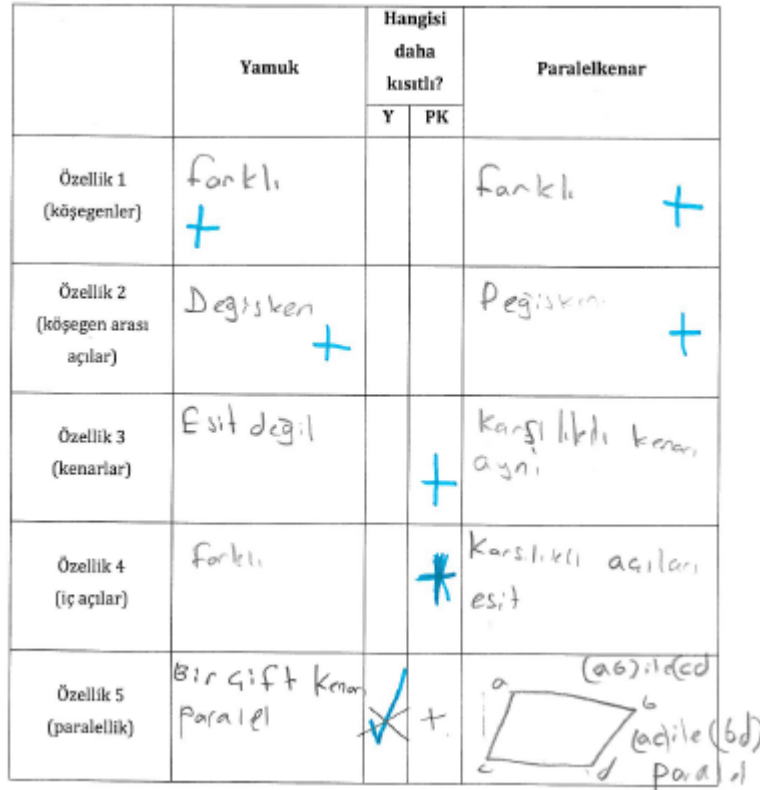 Yamuk
Hangisi
daha
kısıtlı?
Paralelkenar
Y PK
Özellik 1
(köşegenler)
farklı
farklı
+
+
Özellik 2
(köşegen arası
açılar)
Değişken
Değişken
+
+
Özellik 3
(kenarlar)
Eşit değil
Karşılıklı kenarı
aynı
+
Özellik 4
(iç açılar)
farklı
Karşılıklı açıları
eşit
Özellik 5
(paralellik)
Bir çift kenar
paralel
+
(ab) ile (cd
a
b
(ac) ile (bd)
c
d
paralel